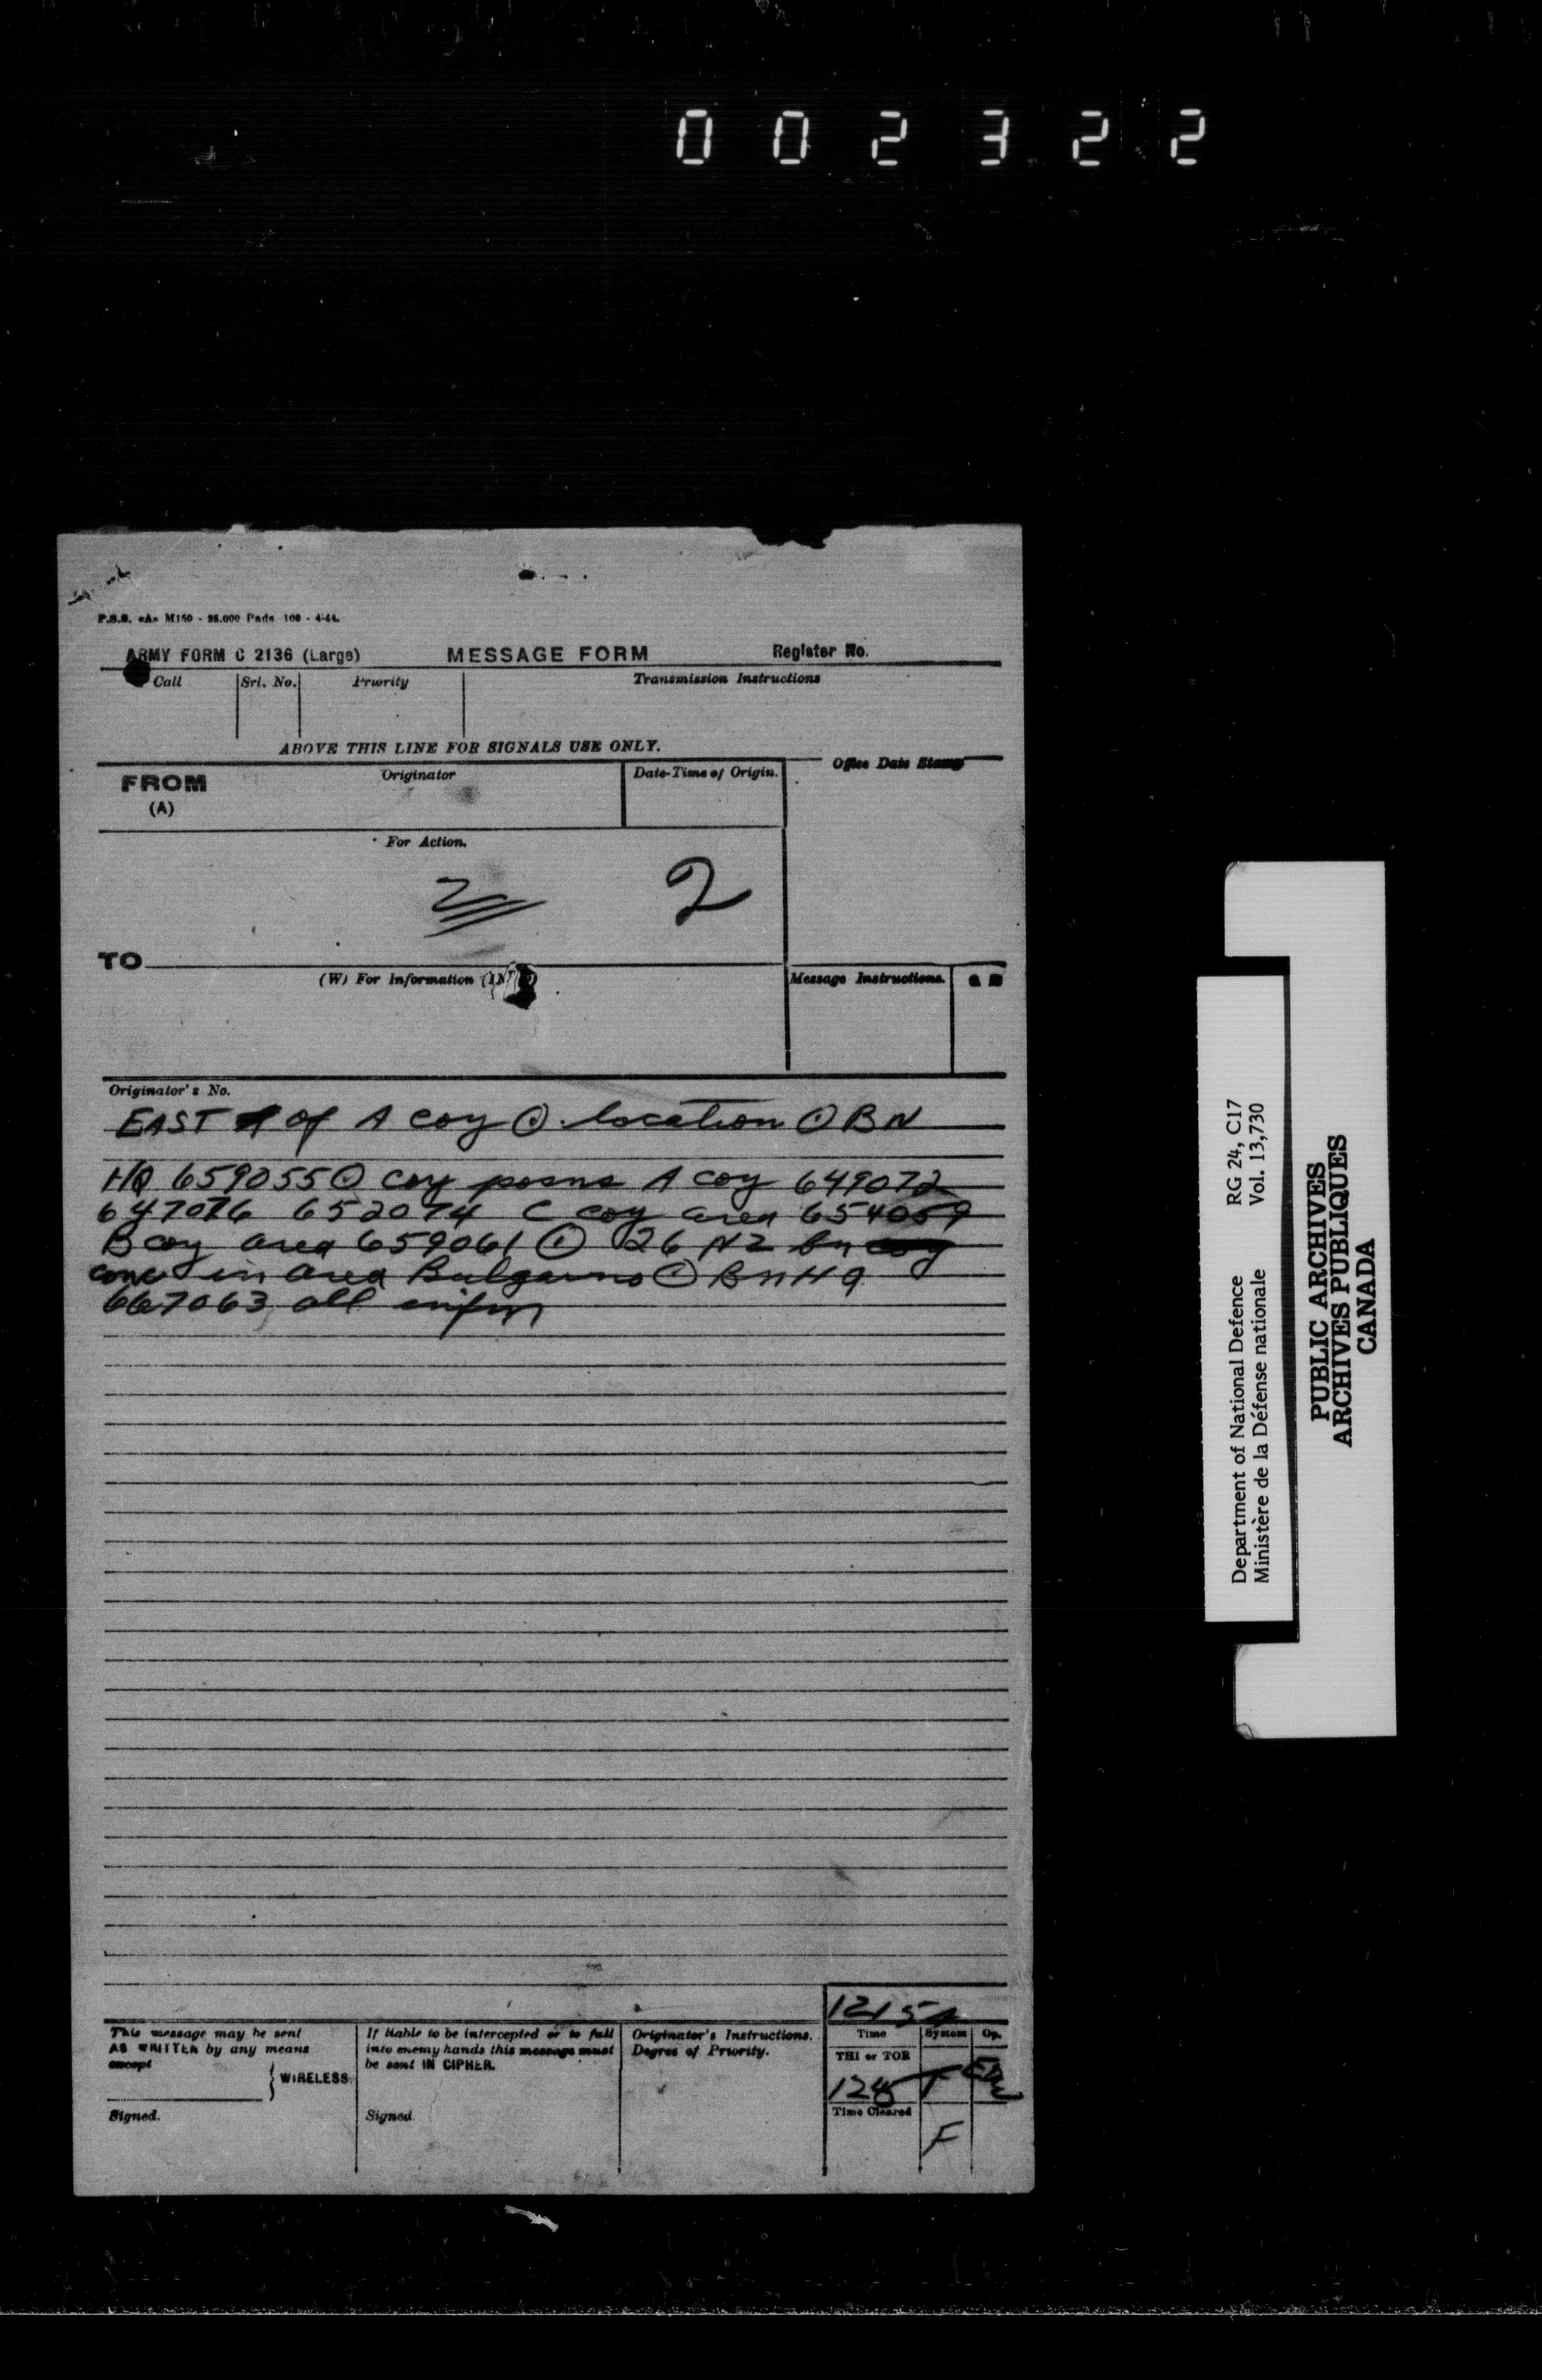 002322
P.B.S. «A» M150 - 25.000 Pads 100 - 4-44.
ARMY FORM C 2136 (Large) MESSAGE FORM Register No.
Call Srl. No. Priority Transmission Instructions
ABOVE THIS LINE FOR SIGNALS USE ONLY.
FROM (A) Originator Date-Time of Origin. Office Date Stamp
For Action.
2 2
TO
(W) For Information Message Instructions. G R
Originator's No.
EAST of A coy ⊙ location ⊙ BN
HQ 659055 ⊙ coy posns A coy 649072
647076 652074 C coy area 654059
B coy area 659061 ⊙ 26 NZ bn coy
conc in area Bulgarno ⊙ Bn HQ
667063 all infm
12154
This message may be sent
AS WRITTEN by any means
except
WIRELESS
Signed.
If liable to be intercepted or to fall
into enemy hands this message must
be sent IN CIPHER.
Signed
Originator's Instructions.
Degree of Priority.
Time System Op.
THI or TOR
Time Cleared
F
Department of National Defence RG 24, C17
Ministère de la Défense nationale Vol. 13,730
PUBLIC ARCHIVES
ARCHIVES PUBLIQUES
CANADA